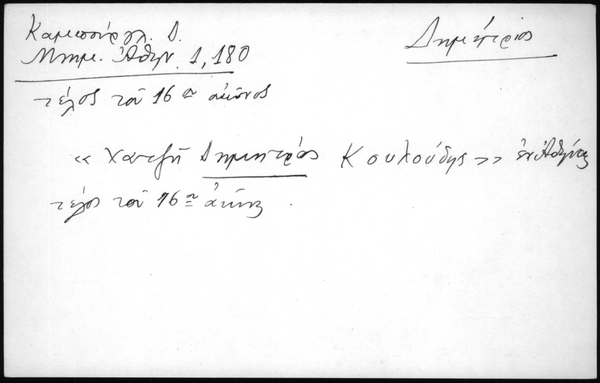 Καμπούρογλ. Δ.
Μνημ. Ἀθην. 1, 180
Δημήτριος
τέλος τοῦ 16ου αἰῶνος
«Χατζῆ Δημητρός Κουλούδης» ἐν Ἀθήναις
τέλος τοῦ 16ου αἰῶνος.